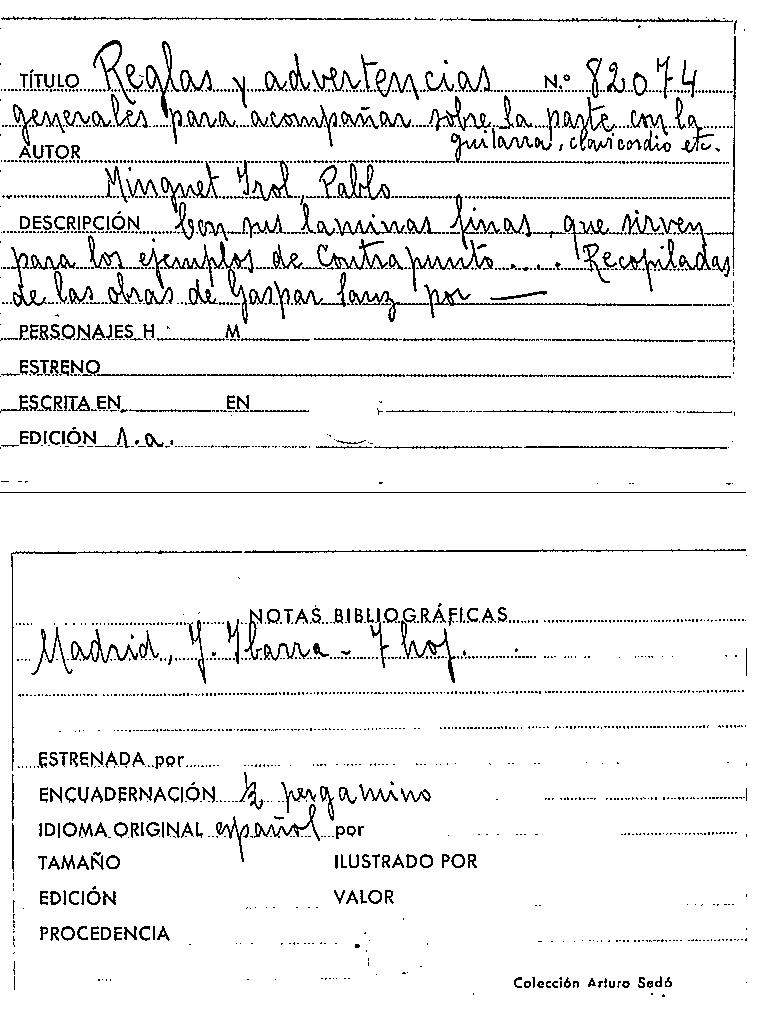 TÍTULO Reglas y advertencias N.º 82074
generales para acompañar sobre la parte con la
guitarra, clavicordio etc.
AUTOR
Minguet Irol, Pablo
DESCRIPCIÓN Con sus laminas finas, que sirven
para los ejemplos de Contrapunto .... Recopiladas
de las obras de Gaspar Sanz por —
PERSONAJES H M
ESTRENO
ESCRITA EN EN
EDICIÓN s.a.
NOTAS BIBLIOGRÁFICAS
Madrid, J. Ibarra - 7 hoj.
ESTRENADA por
ENCUADERNACIÓN ½ pergamino
IDIOMA ORIGINAL español por
TAMAÑO ILUSTRADO POR
EDICIÓN VALOR
PROCEDENCIA
Colección Arturo Sedó